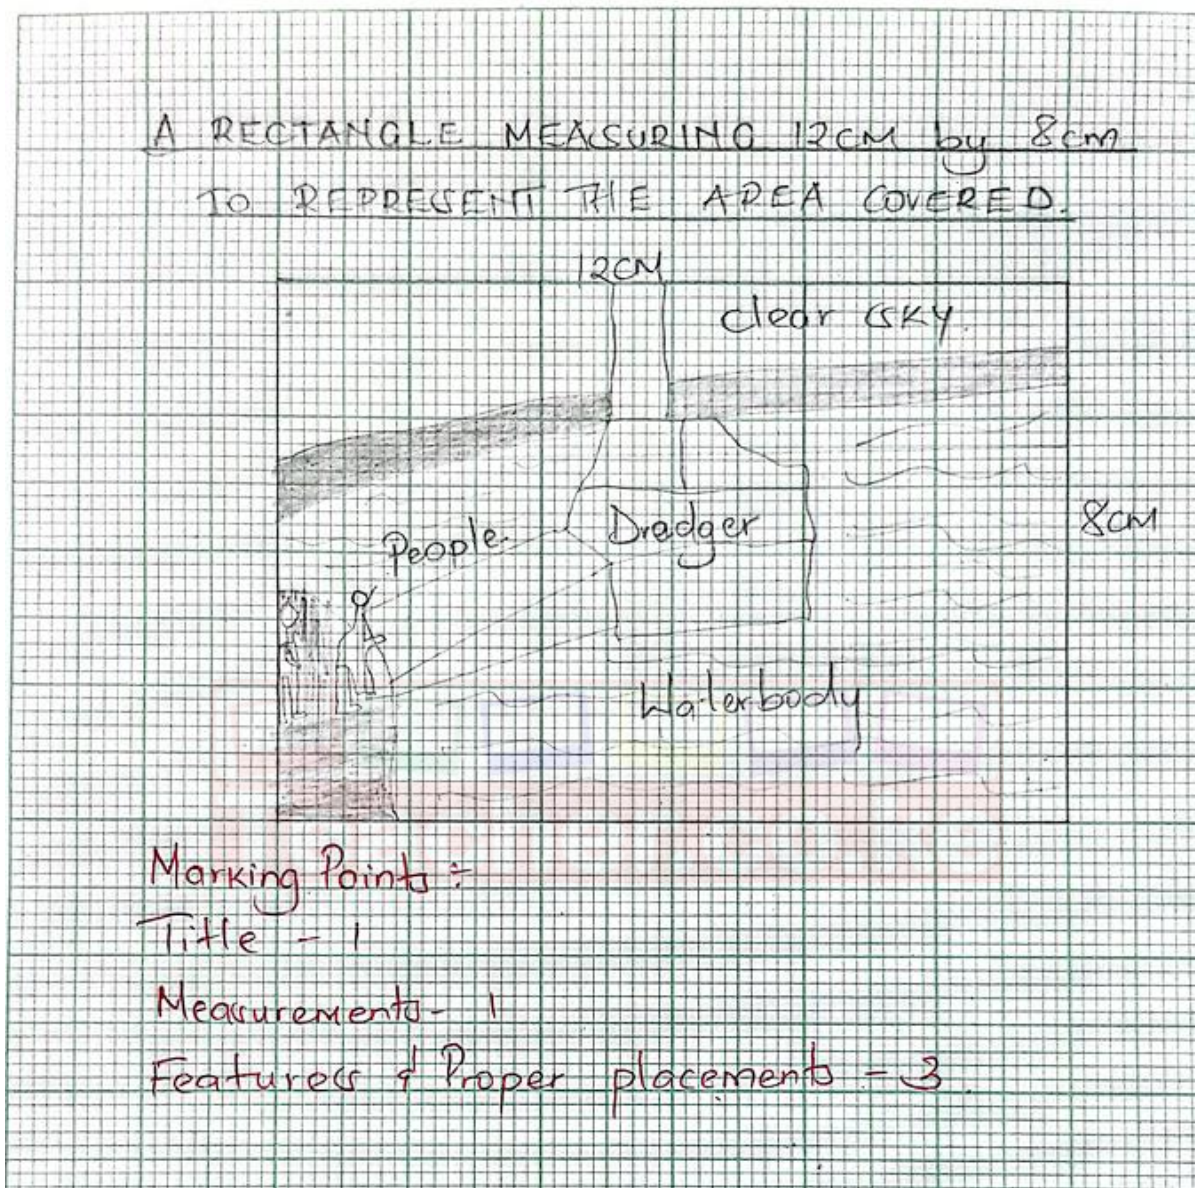 A RECTANGLE MEASURING 12CM by 8cm
TO REPRESENT THE AREA COVERED.
12CM
clear SKY
People
Dredger
8CM
Waterbody
Marking Points :-
Title - 1
Measurements - 1
Features & Proper placements - 3